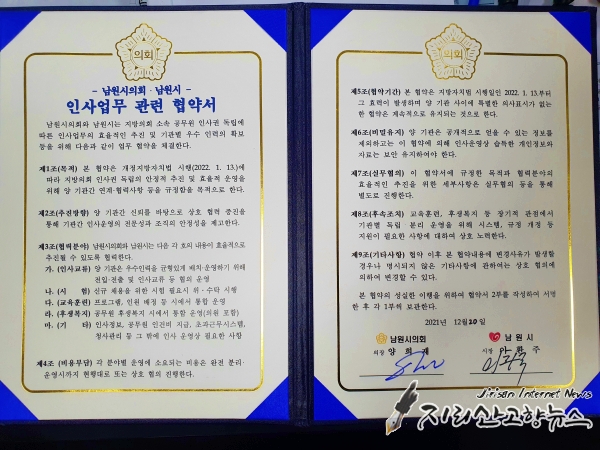 의회
- 남원시의회 · 남원시 -
인사업무 관련 협약서
남원시의회와 남원시는 지방의회 소속 공무원 인사권 독립에
따른 인사업무의 효율적인 추진 및 기관별 우수 인력의 확보
등을 위해 다음과 같이 업무 협약을 체결한다.
제1조(목적) 본 협약은 개정지방자치법 시행(2022. 1. 13.)에
따라 지방의회 인사권 독립의 안정적 추진 및 효율적 운영을
위해 양 기관간 연계·협력사항 등을 규정함을 목적으로 한다.
제2조(추진방향) 양 기관간 신뢰를 바탕으로 상호 협력 증진을
통해 기관간 인사운영의 전문성과 조직의 안정성을 제고한다.
제3조(협력분야) 남원시의회와 남원시는 다음 각 호의 내용이 효율적으로
추진될 수 있도록 협력한다.
가. (인사교류) 양 기관은 우수인력을 균형있게 배치·운영하기 위해
전입·전출 및 인사교류 등 협의 운영
나. (시 험) 신규 채용을 위한 시험 필요시 위·수탁 시행
다. (교육훈련) 프로그램, 인원 배정 등 시에서 통합 운영
라. (후생복지) 공무원 후생복지 시에서 통합 운영(의원 포함)
마. (기 타) 인사정보, 공무원 인건비 지급, 초과근무시스템,
청사관리 등 그 밖에 인사 운영상 필요한 사항
제4조 (비용부담) 각 분야별 운영에 소요되는 비용은 완전 분리·
운영시까지 현행대로 또는 상호 협의 진행한다.
의회
제5조(협약기간) 본 협약은 지방자치법 시행일인 2022. 1. 13.부터
그 효력이 발생하며 양 기관 사이에 특별한 의사표시가 없는
한 협약은 계속적으로 유지되는 것으로 한다.
제6조(비밀유지) 양 기관은 공개적으로 얻을 수 있는 정보를
제외하고는 이 협약에 의해 인사운영상 습득한 개인정보와
자료는 보안 유지하여야 한다.
제7조(실무협의) 이 협약서에 규정한 목적과 협력분야의
효율적인 추진을 위한 세부사항은 실무협의 등을 통해
별도로 진행한다.
제8조(후속조치) 교육훈련, 후생복지 등 장기적 관점에서
기관별 독립 분리 운영을 위해 시스템, 규정 개정 등
지원이 필요한 사항에 대하여 상호 노력한다.
제9조(기타사항) 협약 이후 본 협약내용에 변경사유가 발생할
경우나 명시되지 않은 기타사항에 관하여는 상호 협의에
의하여 변경할 수 있다.
본 협약의 성실한 이행을 위하여 협약서 2부를 작성하여 서명
한 후 각 1부씩 보관한다.
2021년 12월 20일
남원시의회 남원시
의장 양희재 시장 이환주
Jirisan Internet News
지리산고향뉴스